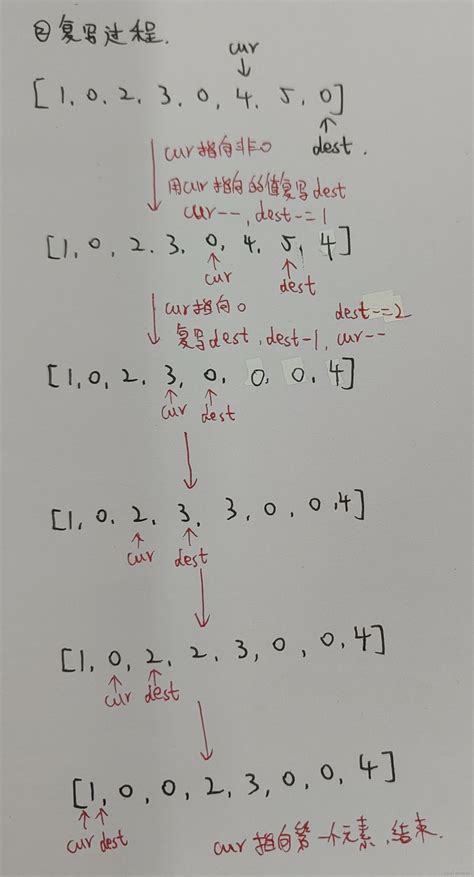 ②复写过程.
cur
[1,0,2,3,0,4,5,0]
dest.
cur指向非0
用cur指向的值复写dest
cur--,dest-=1
[1,0,2,3,0,4,5,4]
cur dest
cur指向0
dest-=2
复写dest,dest-1,cur--
[1,0,2,3,0,0,0,4]
cur dest
[1,0,2,3,3,0,0,4]
cur dest
[1,0,2,2,3,0,0,4]
cur dest
[1,0,0,2,3,0,0,4]
cur dest
cur指向第一个元素,结束.